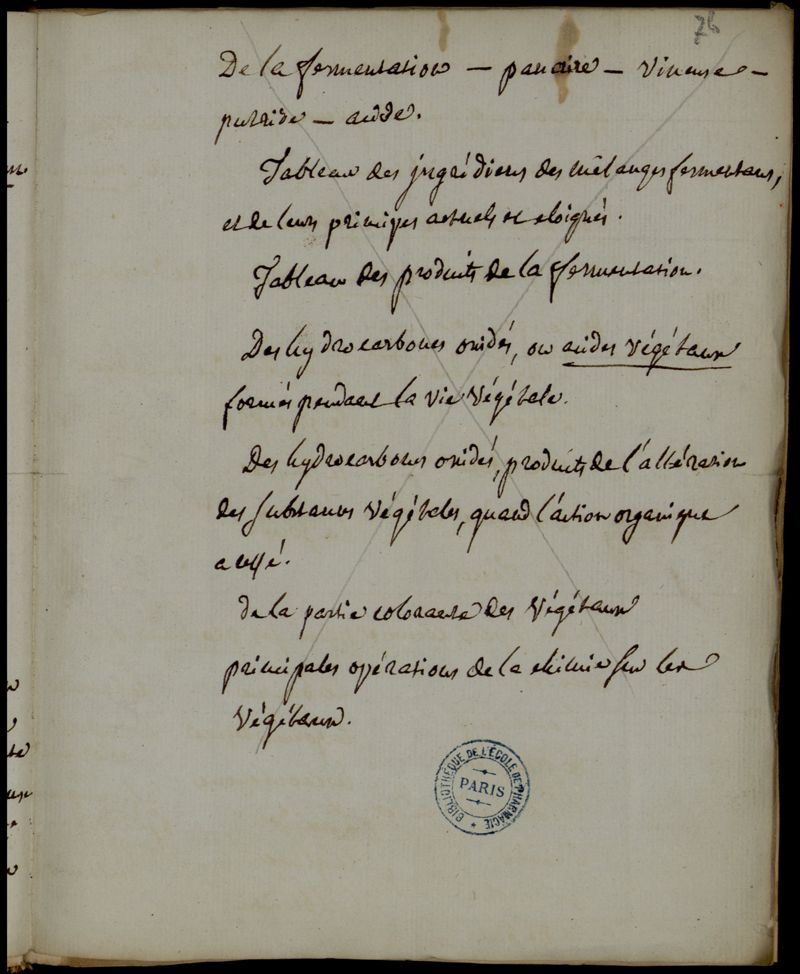 76
De la fermentation — panaire — vineuse —
putride — acide.
Tableau des ingrédiens des mélanges fermentans,
et de leurs principes actuels et eloignés.
Tableau des produits de la fermentation.
Des hydrocarbones oxidés, ou acides végétaux
formés pendant la vie végétale.
Des hydrocarbones oxidés, produits de l'altération
des substances végétales, quand l'action organique
a cessé.
de la partie colorante des végétaux
principales opérations de la chimie sur les
végétaux.
BIBLIOTHÈQUE DE L'ÉCOLE DE PHARMACIE
PARIS